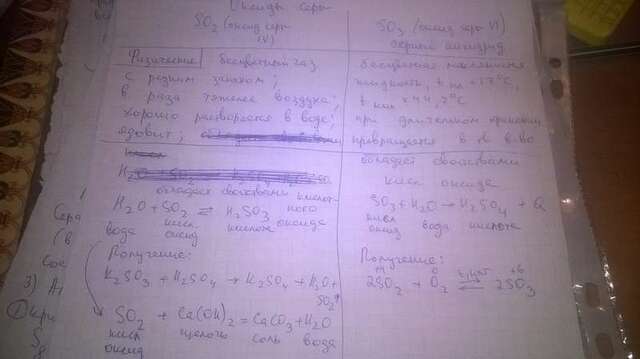 Оксиды серы
SO2 (оксид серы IV)
SO3 (оксид серы VI)
серный ангидрид
Физические бесцветный газ
с резким запахом;
в раза тяжелее воздуха;
хорошо растворяется в воде;
ядовит;
бесцветная маслянистая
жидкость, t пл = 17°C,
t кип = 44,7°C
при длительном хранении
превращается в тв. в-во
обладает свойствами кислотного оксида
H2O + SO2 ⇌ H2SO3
вода кисл. оксид кислота
обладает свойствами
кисл. оксида
SO3 + H2O → H2SO4 + Q
кисл оксид вода кислота
Получение:
K2SO3 + H2SO4 → K2SO4 + H2O + SO2↑
SO2 + Ca(OH)2 = CaCO3 + H2O
кисл оксид щелочь соль вода
Получение:
2SO2 + O2 ⇌ 2SO3
Сера
(в
3)